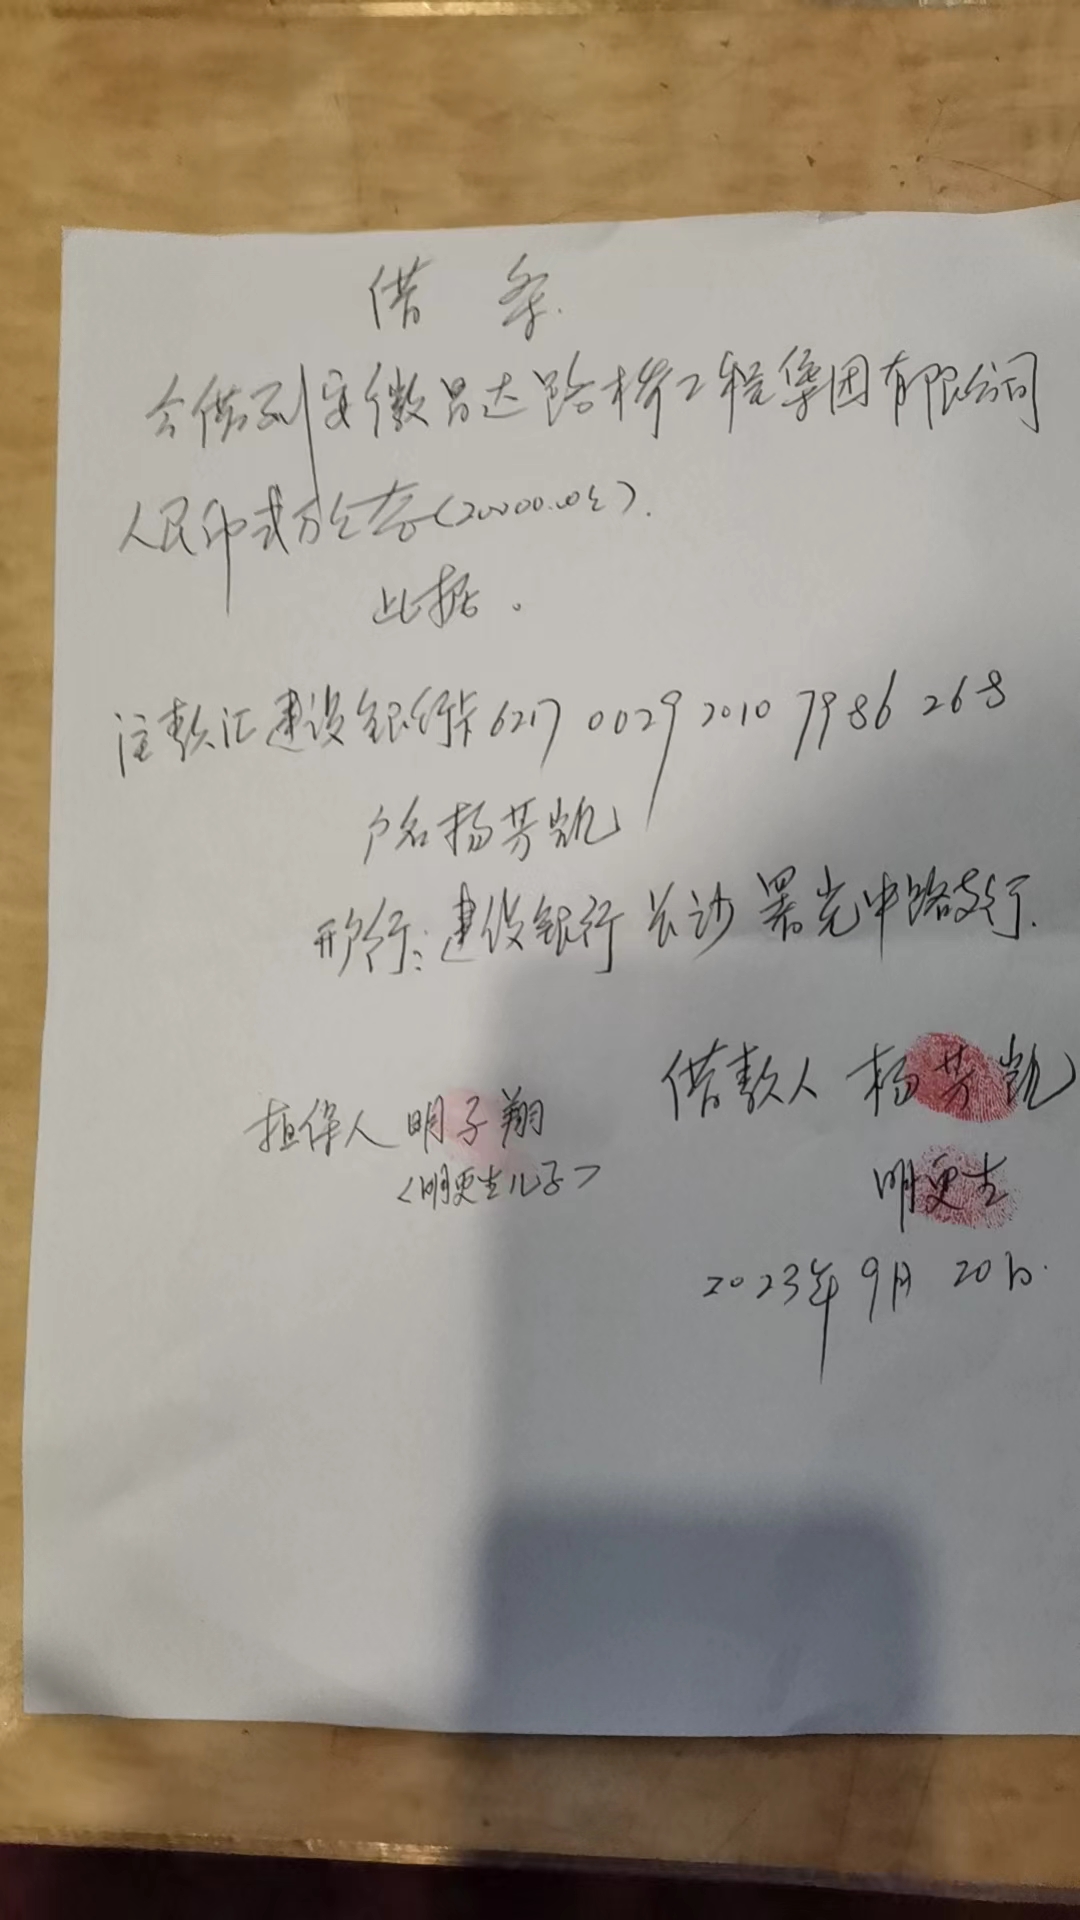 借条.
今借到安徽昌达路桥工程集团有限公司
人民币贰万元整(20000.00元).
此据.
注款汇建设银行卡6217 0029 2010 7986 268
户名杨芳凯
开行:建设银行长沙署光中路支行.
借款人 杨芳凯
担保人 明子翔
<明更生儿子>
明更生
2023年9月20日.